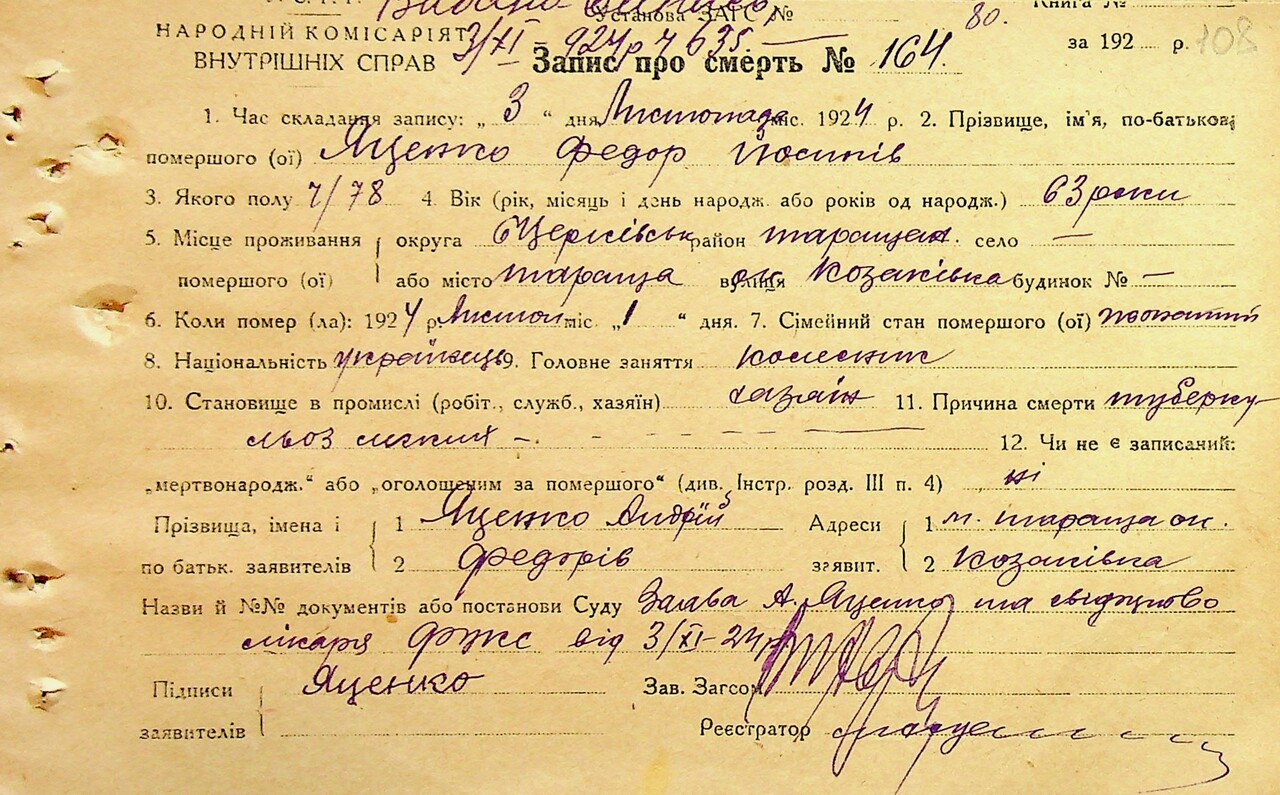 Установа ЗАГС № 80. Книга №
НАРОДНІЙ КОМІСАРІЯТ 3/XI – 924 р. ч 635. за 192 р. 108
ВНУТРІШНІХ СПРАВ Запис про смерть № 164.
1. Час складання запису: „ 3 “ дня Листопада міс. 1924 р. 2. Прізвище, ім'я, по-батькові
помершого (ої) Яценко Федор Йосипів
3. Якого полу ч/78 4. Вік (рік, місяць і день народж. або років од народж.) 63 роки
5. Місце проживання округа БЦерківськ район таращан. село —
помершого (ої) або місто тараща вулиця ок. Козаківка будинок № —
6. Коли помер (ла): 1924 р. Листоп міс. „ 1 “ дня. 7. Сімейний стан помершого (ої) жонатий
8. Національність українець 9. Головне заняття колесник
10. Становище в промислі (робіт., служб., хазяїн) хазяїн 11. Причина смерти туберку
льоз легких –. 12. Чи не є записаний:
„мертвонародж.“ або „оголошеним за помершого“ (див. Інстр. розд. III п. 4) ні
Прізвища, імена і 1 Яценко Андрій Адреси 1 м. тараща ок.
по батьк. заявителів 2 Федорів заявит. 2 Козаківка
Назви й №№ документів або постанови Суду Заява А. Яценко та свідоцтво
лікаря ФЖС від 3/XI–24 р.
Підписи Яценко Зав. Загсом
заявителів Реєстратор